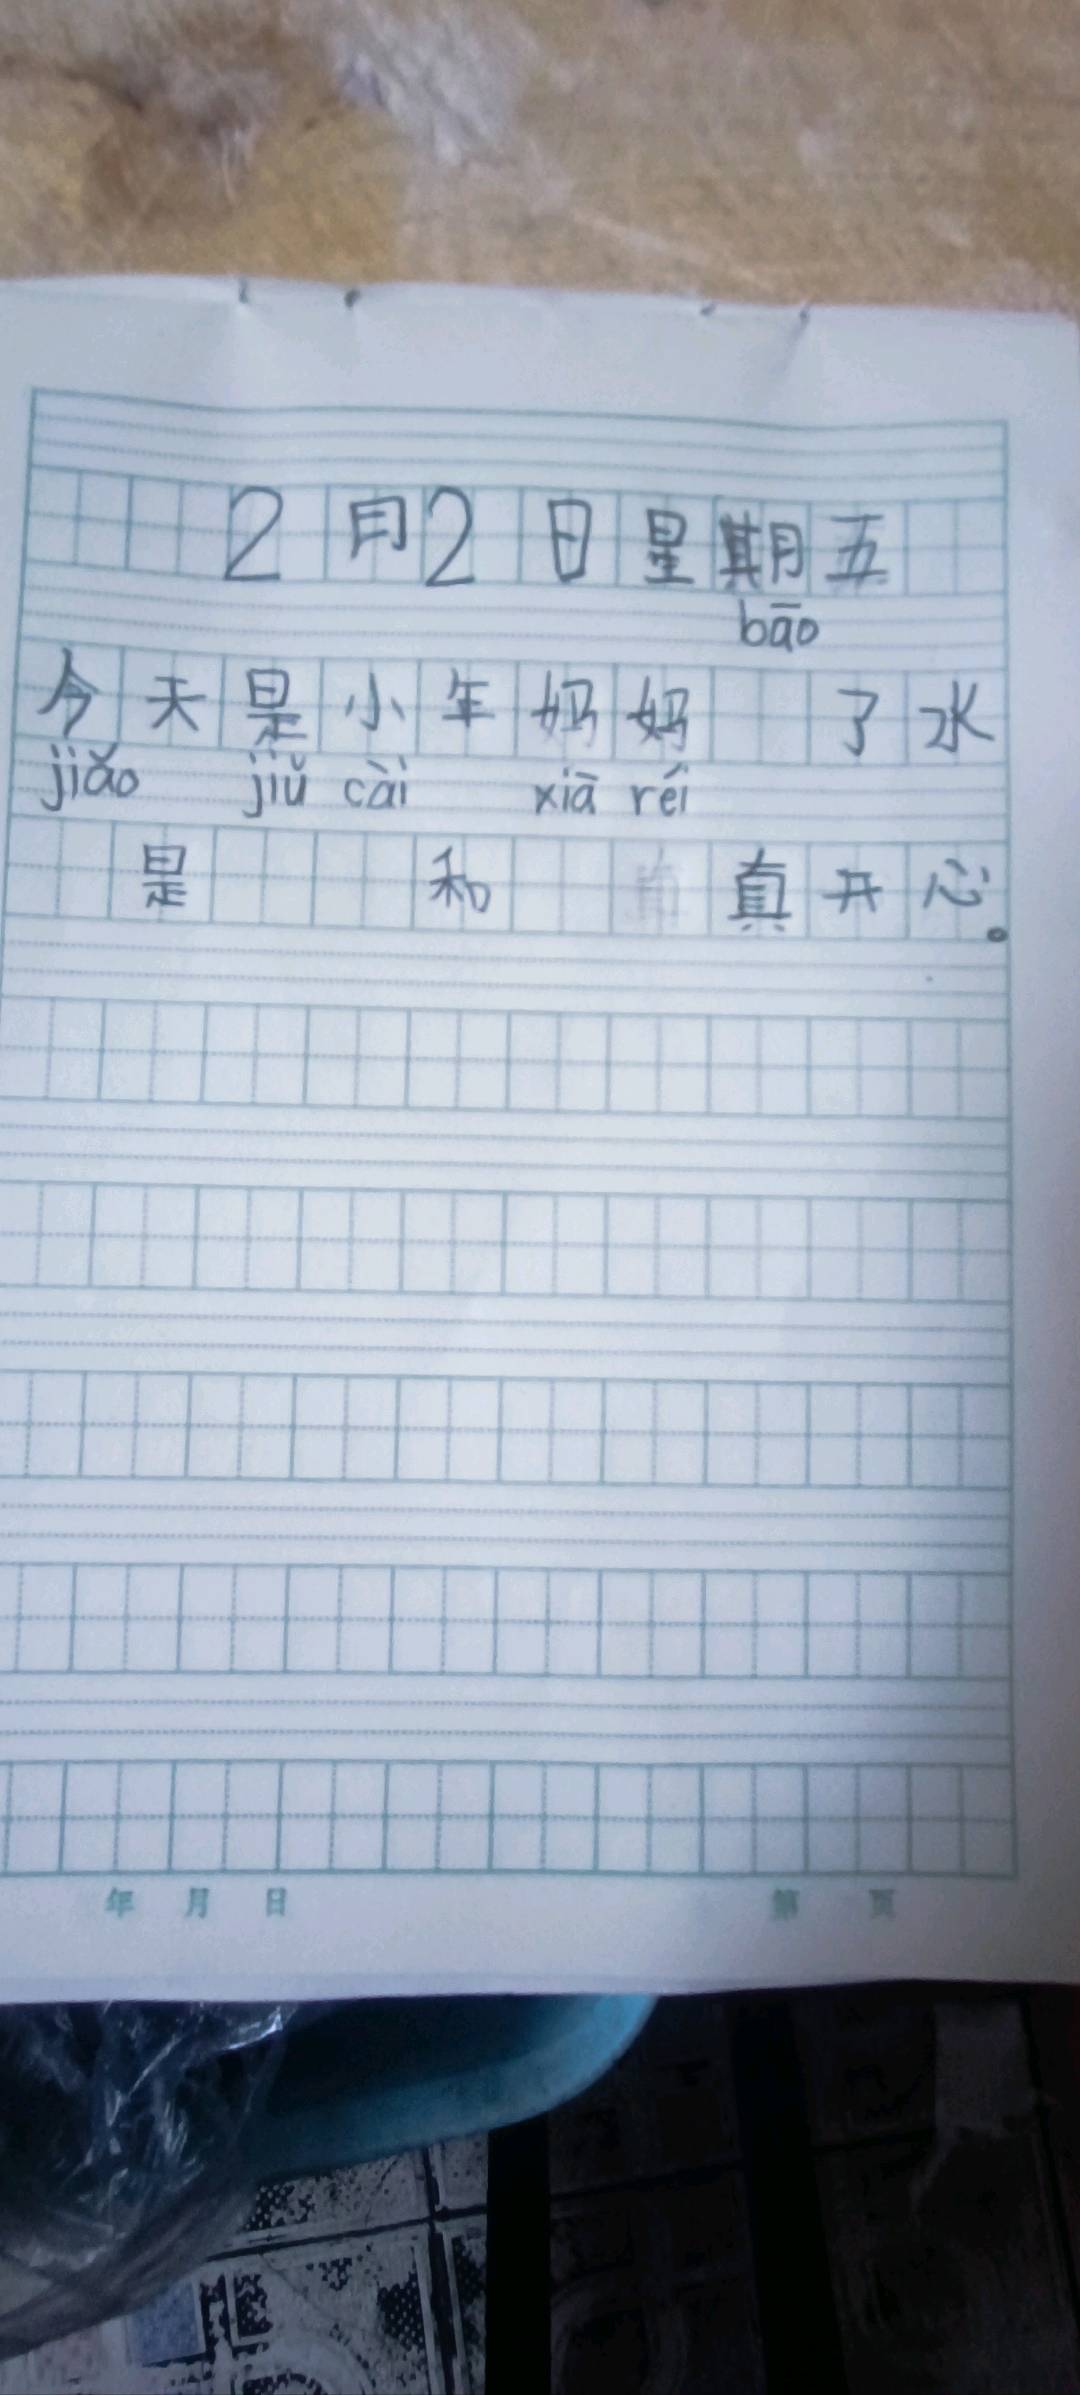 2月2日星期五
bāo
今天是小年妈妈 了水
jiǎo jiǔ cài xiā réi
是 和 真开心。
年 月 日 第 页